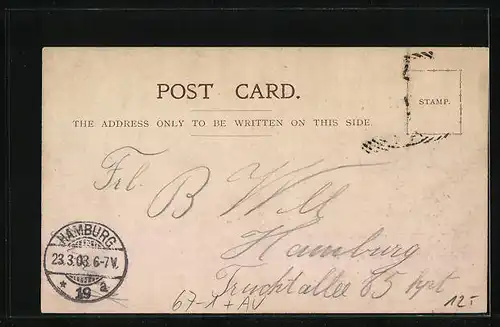 POST CARD.
STAMP.
THE ADDRESS ONLY TO BE WRITTEN ON THIS SIDE.
Frl. B Will
Hamburg
65 hpt
HAMBURG
23.3.03. 6-7V.
* 19 a
67-X + AV
12.-